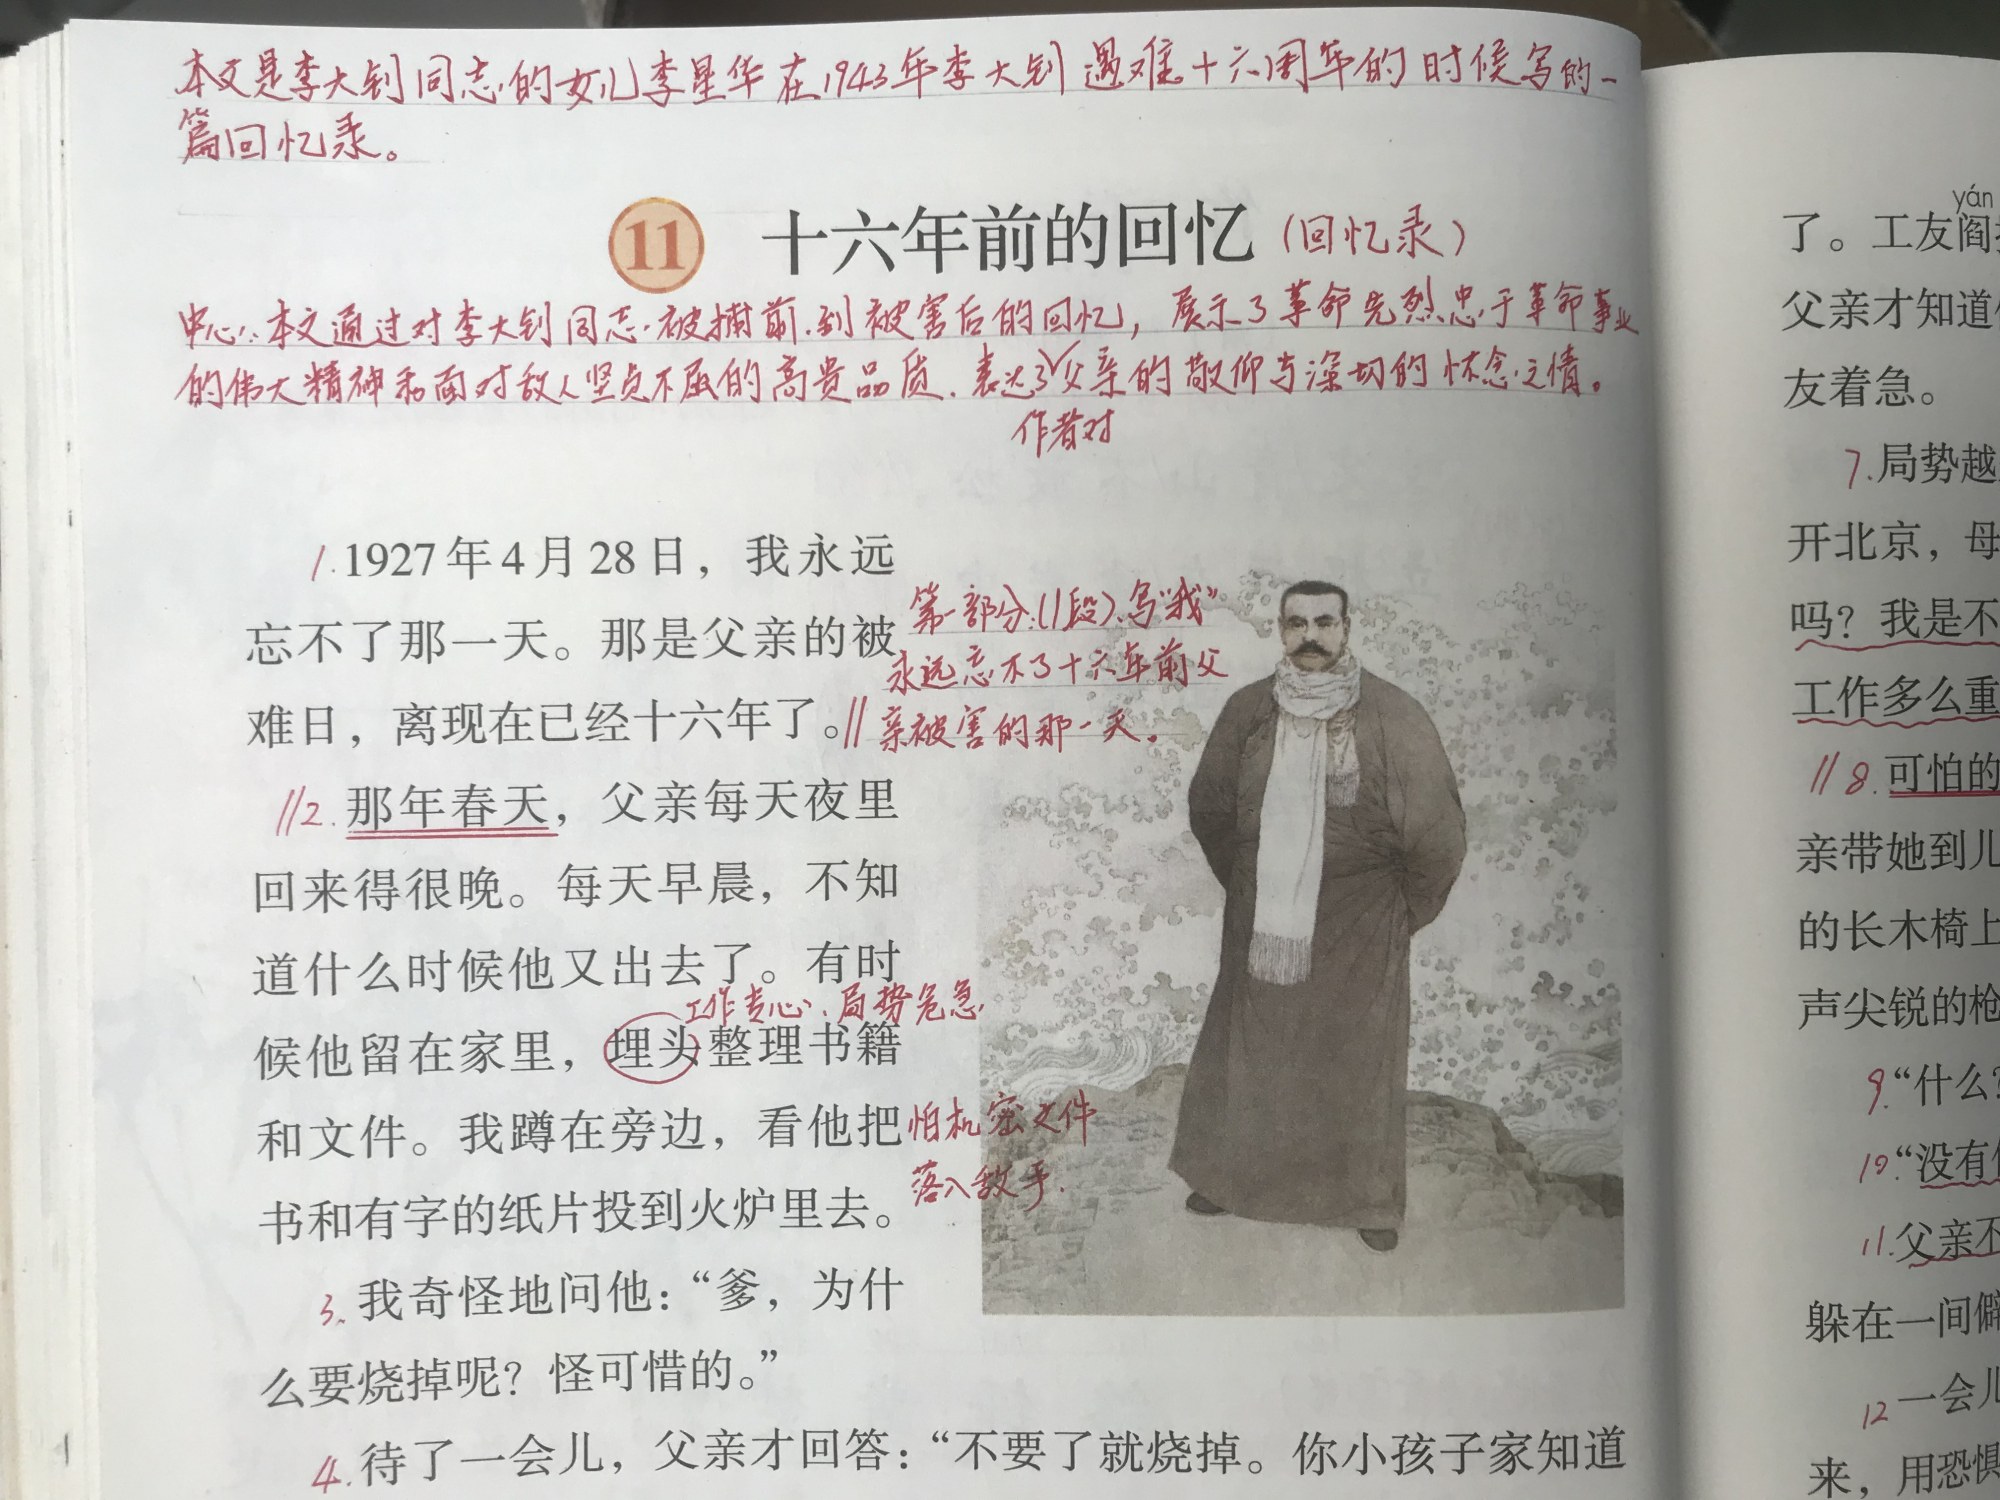 本文是李大钊同志的女儿李星华在1943年李大钊遇难十六周年的时候写的一
篇回忆录。
11 十六年前的回忆(回忆录)
中心:本文通过对李大钊同志被捕前到被害后的回忆,展示了革命先烈忠于革命事业
的伟大精神和面对敌人坚贞不屈的高贵品质,表达了√父亲的敬仰与深切的怀念之情。
作者对
1.1927年4月28日,我永远
忘不了那一天。那是父亲的被
难日,离现在已经十六年了。//
第一部分:(1段)写“我”
永远忘不了十六年前父
亲被害的那一天。
//2.那年春天,父亲每天夜里
回来得很晚。每天早晨,不知
道什么时候他又出去了。有时
工作专心、局势危急
候他留在家里,埋头整理书籍
和文件。我蹲在旁边,看他把
书和有字的纸片投到火炉里去。
怕机密文件
落入敌手.
3.我奇怪地问他:“爹,为什
么要烧掉呢?怪可惜的。”
4.待了一会儿,父亲才回答:“不要了就烧掉。你小孩子家知道
yán
了。工友阎
父亲才知道
友着急。
7.局势越
开北京,母
吗?我是不
工作多么重
//8.可怕的
亲带她到儿
的长木椅上
声尖锐的枪
9.“什么?
10.“没有
11.父亲不
躲在一间僻
12一会儿
来,用恐惧